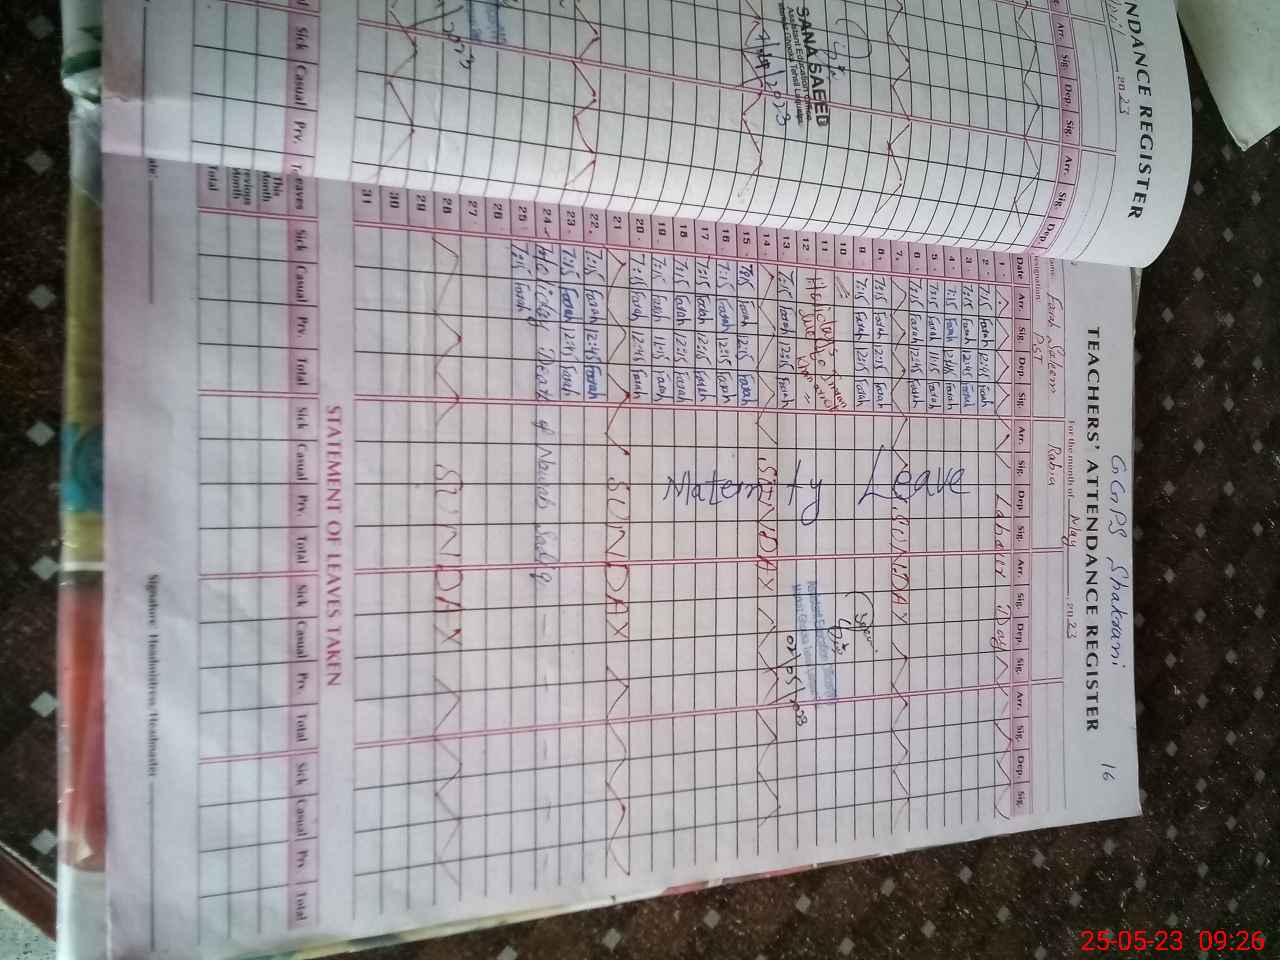 GGPS Shakrani 16
TEACHERS' ATTENDANCE REGISTER
For the month of May 2023
Name: Farah Saleem Rabia
Designation: PST
Date Arr. Sig. Dep. Sig. Arr. Sig. Dep. Sig. Arr. Sig. Dep. Sig. Arr. Sig. Dep. Sig.
1 Labour Day
2 7:15 Farah 12:45 Farah
3 7:15 Farah 12:45 Farah
4 7:15 Farah 12:45 Farah
5 7:15 Farah 11:15 Farah
6 7:15 Farah 12:45 Farah
7 SUNDAY
8 7:15 Farah 12:15 Farah
9 7:15 Farah 12:15 Farah
Maternity Leave
10
11 Holidays
12 due to Imran Khan
13 7:15 Farah 12:15 Farah
02/05/2023
14 SUNDAY
15 7:15 Farah 12:15 Farah
16 7:15 Farah 12:15 Farah
17 7:15 Farah 12:15 Farah
18 7:15 Farah 12:15 Farah
19 7:15 Farah 11:15 Farah
20 7:15 Farah 12:45 Farah
21 SUNDAY
22 7:15 Farah 12:45 Farah
23 7:15 Farah 12:45 Farah
24 Holiday Death of Nawab Sadiq
25 7:15 Farah
26
27
28 SUNDAY
29
30
31
STATEMENT OF LEAVES TAKEN
Leaves Sick Casual Prv. Total Sick Casual Prv. Total Sick Casual Prv. Total Sick Casual Prv. Total
This Month
Previous Month
Total
Signature Headmistress/Headmaster
NDANCE REGISTER
2023
Arr. Sig. Dep. Sig. Arr. Sig. Dep.
SANA SAEED
Assistant Education Officer
2023
Sick Casual Prv.
25-05-23 09:26